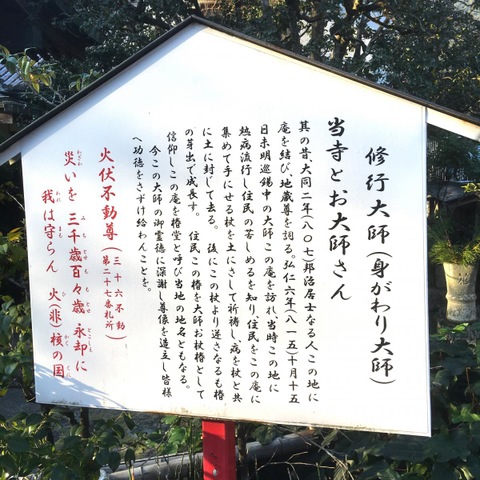 修行大師(身がわり大師)
当寺とお大師さん
其の昔、大同二年(八〇七)邦治居士なる人この地に
庵を結び、地蔵尊を詞る。弘仁六年(八一五)十月十五
日未明巡錫中の大師この庵を訪れ、当時この地に
熱病流行し住民の苦しめるを知り、住民をこの庵に
集めて手にせる杖を土にさして祈祷し、病を杖と共
に土に封じて去る。後にこの杖より逆さなるも椿
の芽出で成長す。住民この椿を大師お杖椿として
信仰しこの庵を椿堂と呼び当地の地名ともなる。
今この大師の御霊徳に深謝し尊像を造立し皆様
へ功徳をさずけ給わんことを。
火伏不動尊(三十六不動 第二十七番札所)
災いを 三千歳百々歳 永却に
我は守らん 火(非)核の国